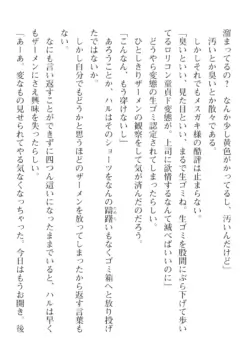 溜まってるの？　なんか少し黄色がかってるし、汚いんだけど」
　汚いとか臭いとか散々である。
　しかしそれでもメスガキ様の酷評は止まらない。
「臭いといい、見た目といい、まるで生ゴミね。生ゴミを股間にぶら下げて歩い
てるロリコン童貞ド変態が、上司に欲情するなんて滅べばいいのに」
　どうやら変態の生ゴミ認定されてしまったらしい。
　ひとしきりザーメンの観察をして気が済んだのだろう。
「こんなん、もう穿けないし」
　あろうことか、ハルはそのショーツをなんの躊躇いもなくゴミ箱へと放り投げ
たではないか。
　しかし自分でもどうかと思うほどのザーメンを放ってしまったから返す言葉も
ない。
　なにも言い返すことができずに四つん這いになったままでいると、ハルは早く
もザーメンにさえ興味を失ったらしい。
「あーあ、変なもの見せられてやる気なくなっちゃった。今日はもうお開き、後